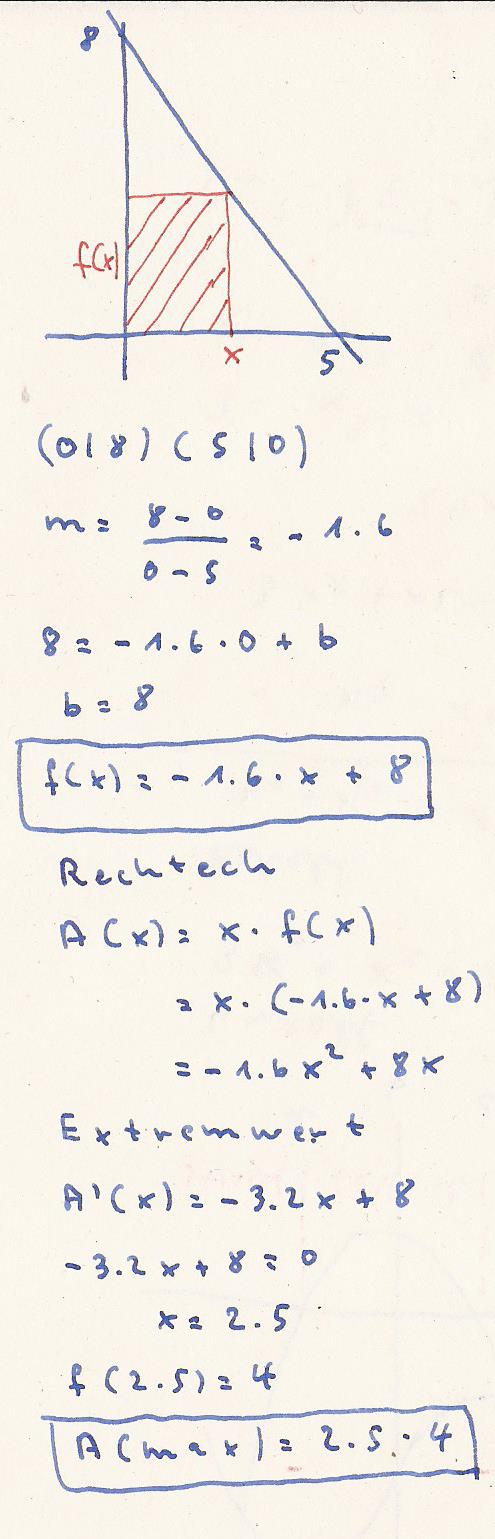 8
f(x)
x
5
(0|8) (5|0)
m = \frac{8-0}{0-5} = -1.6
8 = -1.6 · 0 + b
b = 8
f(x) = -1.6 · x + 8
Rechteck
A(x) = x · f(x)
= x · (-1.6 · x + 8)
= -1.6x² + 8x
Extremwert
A'(x) = -3.2x + 8
-3.2x + 8 = 0
x = 2.5
f(2.5) = 4
A(max) = 2.5 · 4